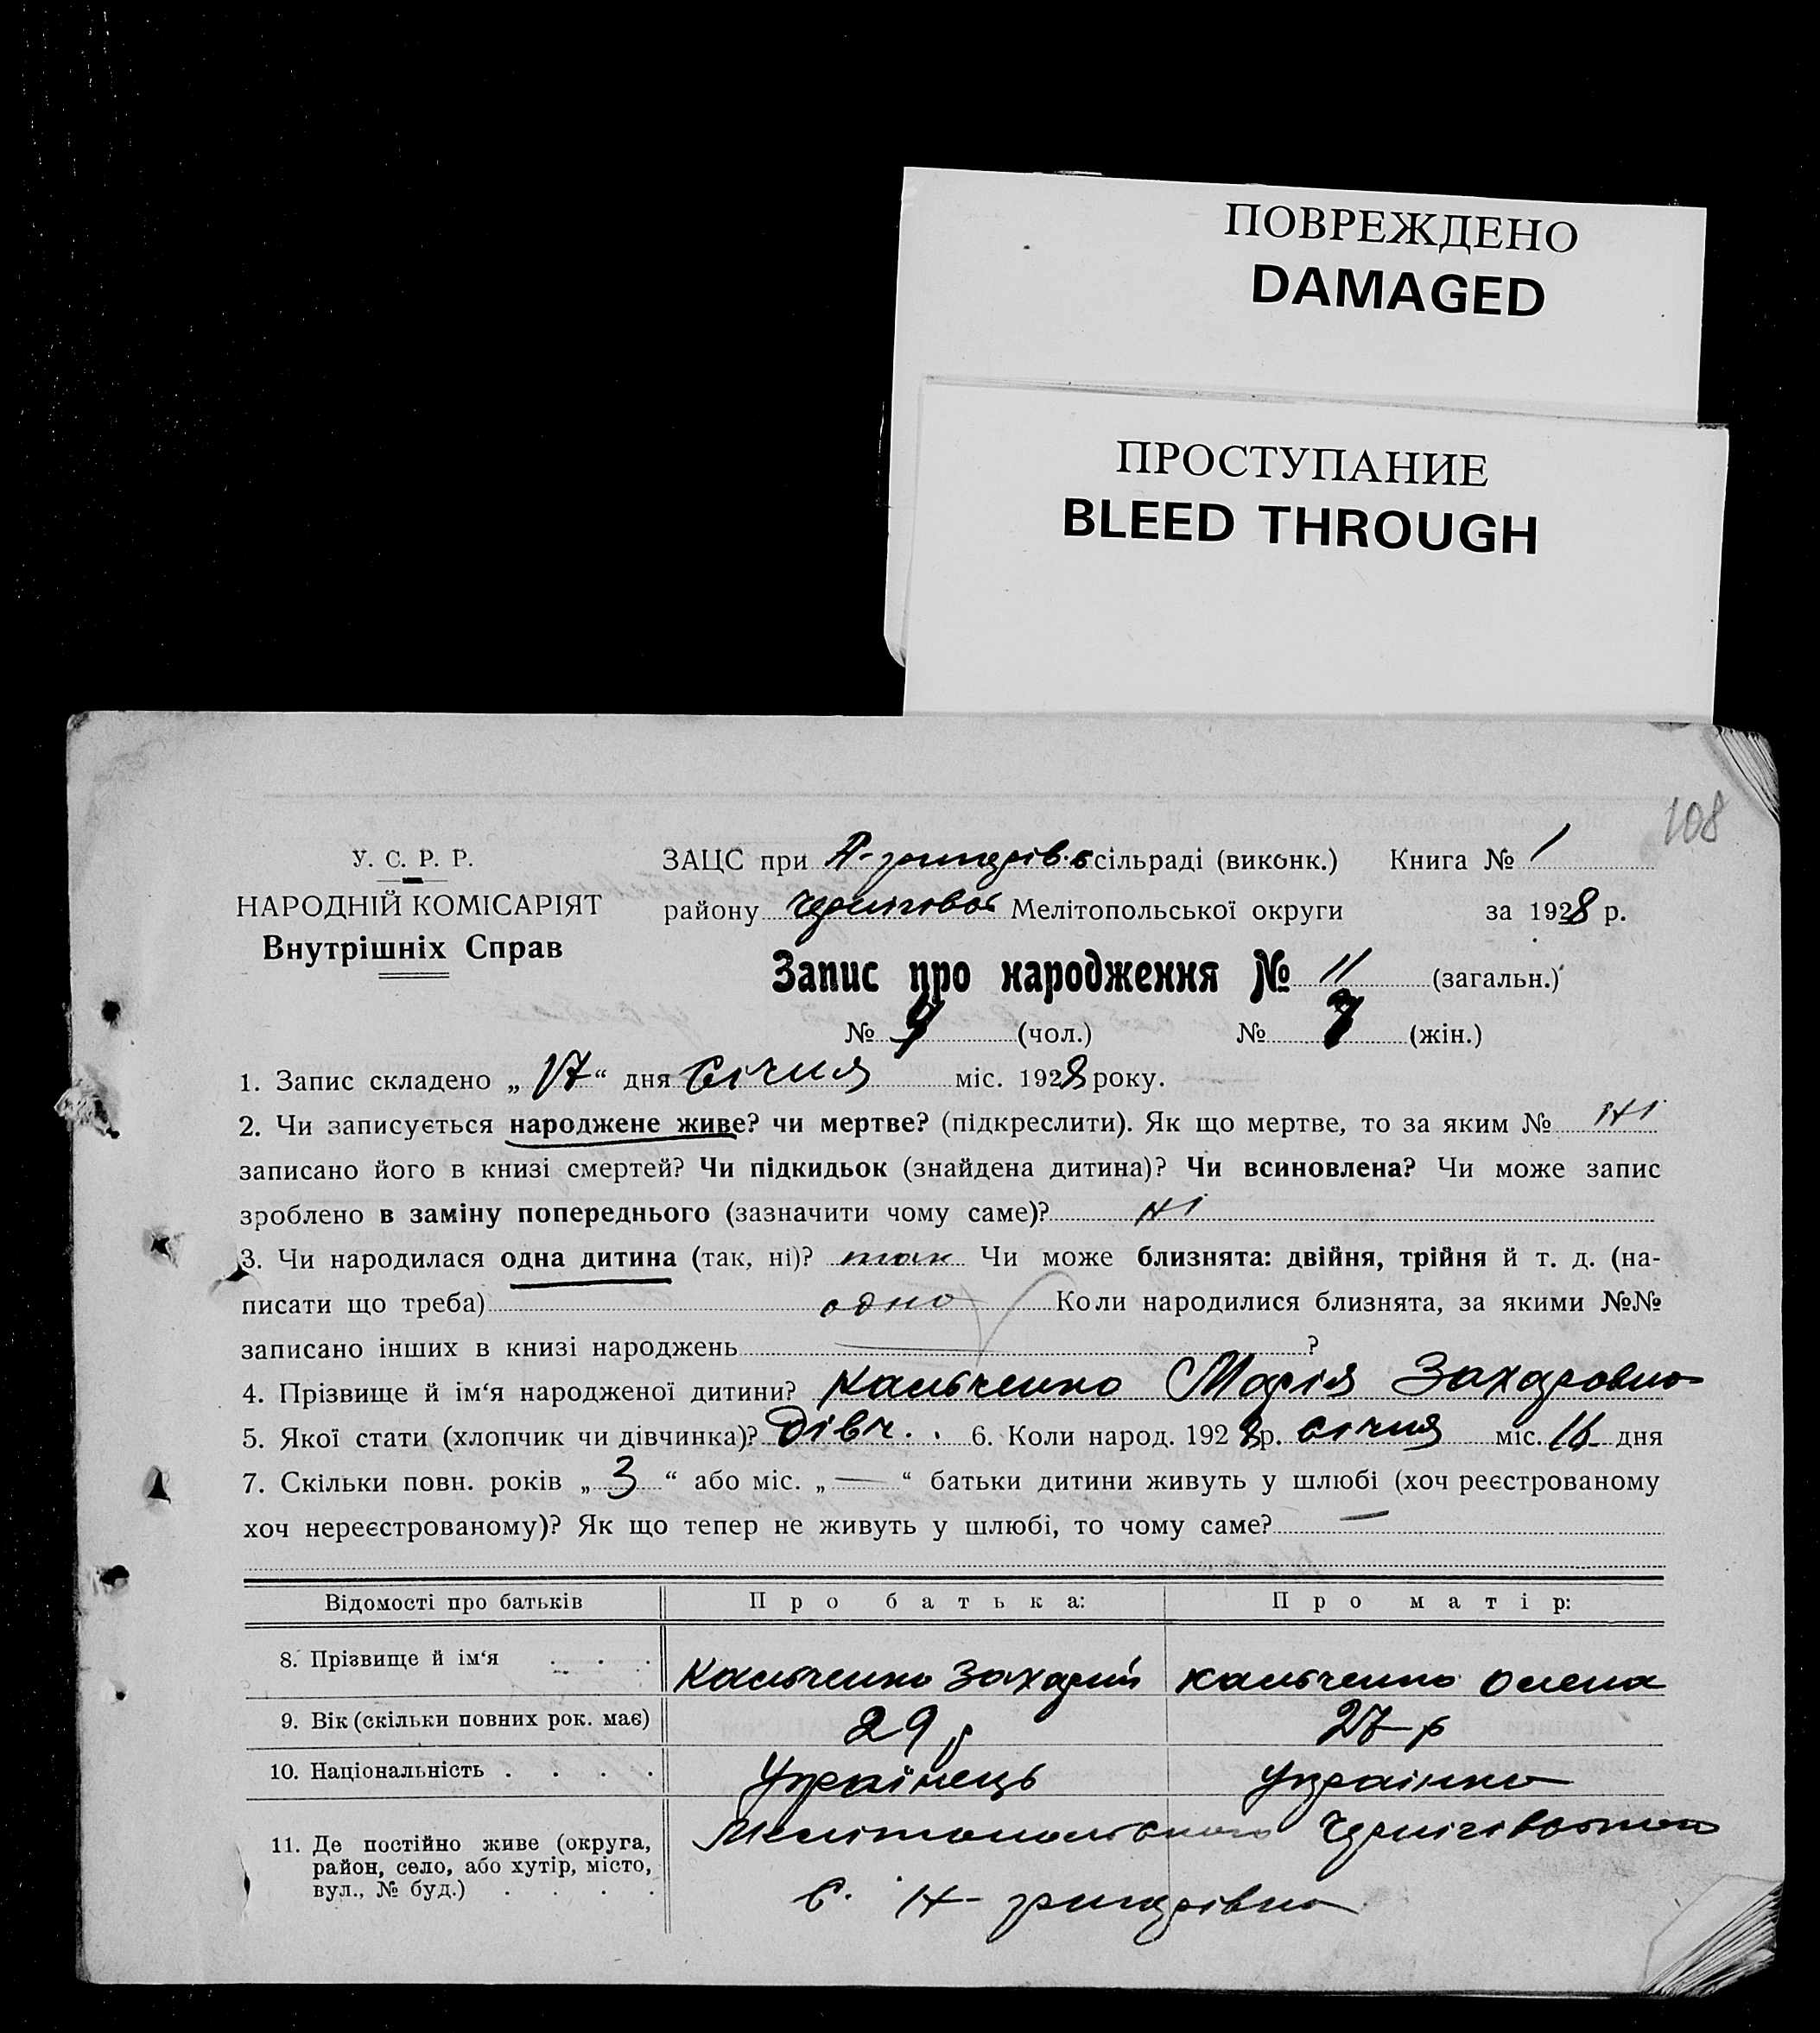 ПОВРЕЖДЕНО
DAMAGED
ПРОСТУПАНИЕ
BLEED THROUGH
108
У. С. Р. Р.
НАРОДНІЙ КОМІСАРІЯТ
Внутрішніх Справ
ЗАЦС при сільраді (виконк.) Книга № 1
району Мелітопольської округи за 1928 р.
Запис про народження № 11 (загальн.)
№ (чол.) № 7 (жін.)
1. Запис складено „ 17 “ дня Січня міс. 1928 року.
2. Чи записується народжене живе? чи мертве? (підкреслити). Як що мертве, то за яким № ні
записано його в книзі смертей? Чи підкидьок (знайдена дитина)? Чи всиновлена? Чи може запис
зроблено в заміну попереднього (зазначити чому саме)? ні
3. Чи народилася одна дитина (так, ні)? так Чи може близнята: двійня, трійня й т. д. (на-
писати що треба) одно Коли народилися близнята, за якими №№
записано інших в книзі народжень — ?
4. Прізвище й ім‘я народженої дитини? Кальченко Марія Захаровна
5. Якої стати (хлопчик чи дівчинка)? Дівч. 6. Коли народ. 1928 р. січня міс. 16 дня
7. Скільки повн. років „ 3 “ або міс. „ — “ батьки дитини живуть у шлюбі (хоч реєстрованому
хоч нереєстрованому)? Як що тепер не живуть у шлюбі, то чому саме? —
Відомості про батьків Про батька: Про матір:
8. Прізвище й ім‘я . . . Кальченко Захарий Кальченко Олена
9. Вік (скільки повних рок. має) 29 р 27 р
10. Національність . . . . Українець Українка
11. Де постійно живе (округа,
район, село, або хутір, місто,
вул., № буд.) . . . .
с. Н-